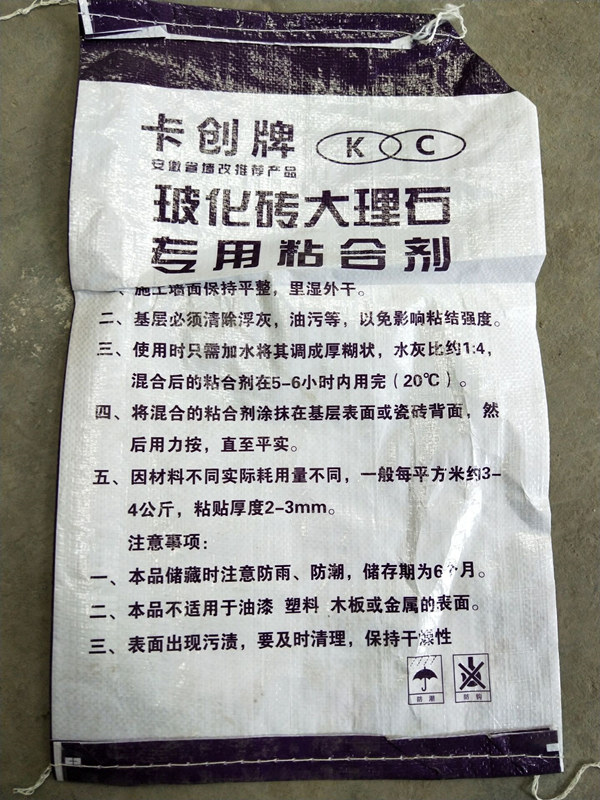 卡创牌 K C
安徽省墙改推荐产品
玻化砖大理石
专用粘合剂
一、施工墙面保持平整，里湿外干。
二、基层必须清除浮灰，油污等，以免影响粘结强度。
三、使用时只需加水将其调成厚糊状，水灰比约1:4，
混合后的粘合剂在5-6小时内用完（20℃）。
四、将混合的粘合剂涂抹在基层表面或瓷砖背面，然
后用力按，直至平实。
五、因材料不同实际耗用量不同，一般每平方米约3-
4公斤，粘贴厚度2-3mm。
注意事项：
一、本品储藏时注意防雨、防潮，储存期为6个月。
二、本品不适用于油漆 塑料 木板或金属的表面。
三、表面出现污渍，要及时清理，保持干燥性
防潮